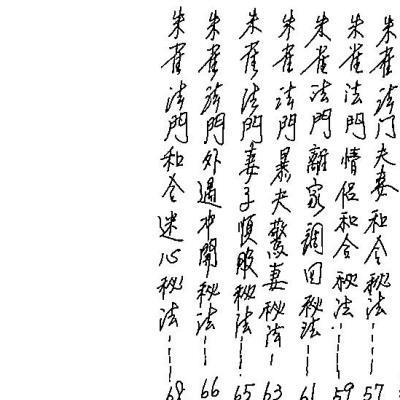 朱雀法門夫妻和合秘法……57
朱雀法門情侶和合秘法……59
朱雀法門離家調回秘法……61
朱雀法門暴夫驚妻秘法……63
朱雀法門妻子順服秘法……65
朱雀法門外遇沖開秘法……66
朱雀法門和合迷心秘法……68